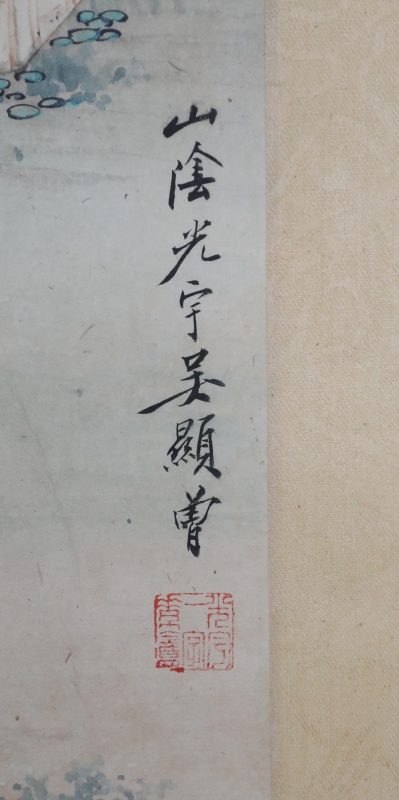 山陰光宇吳顯曾